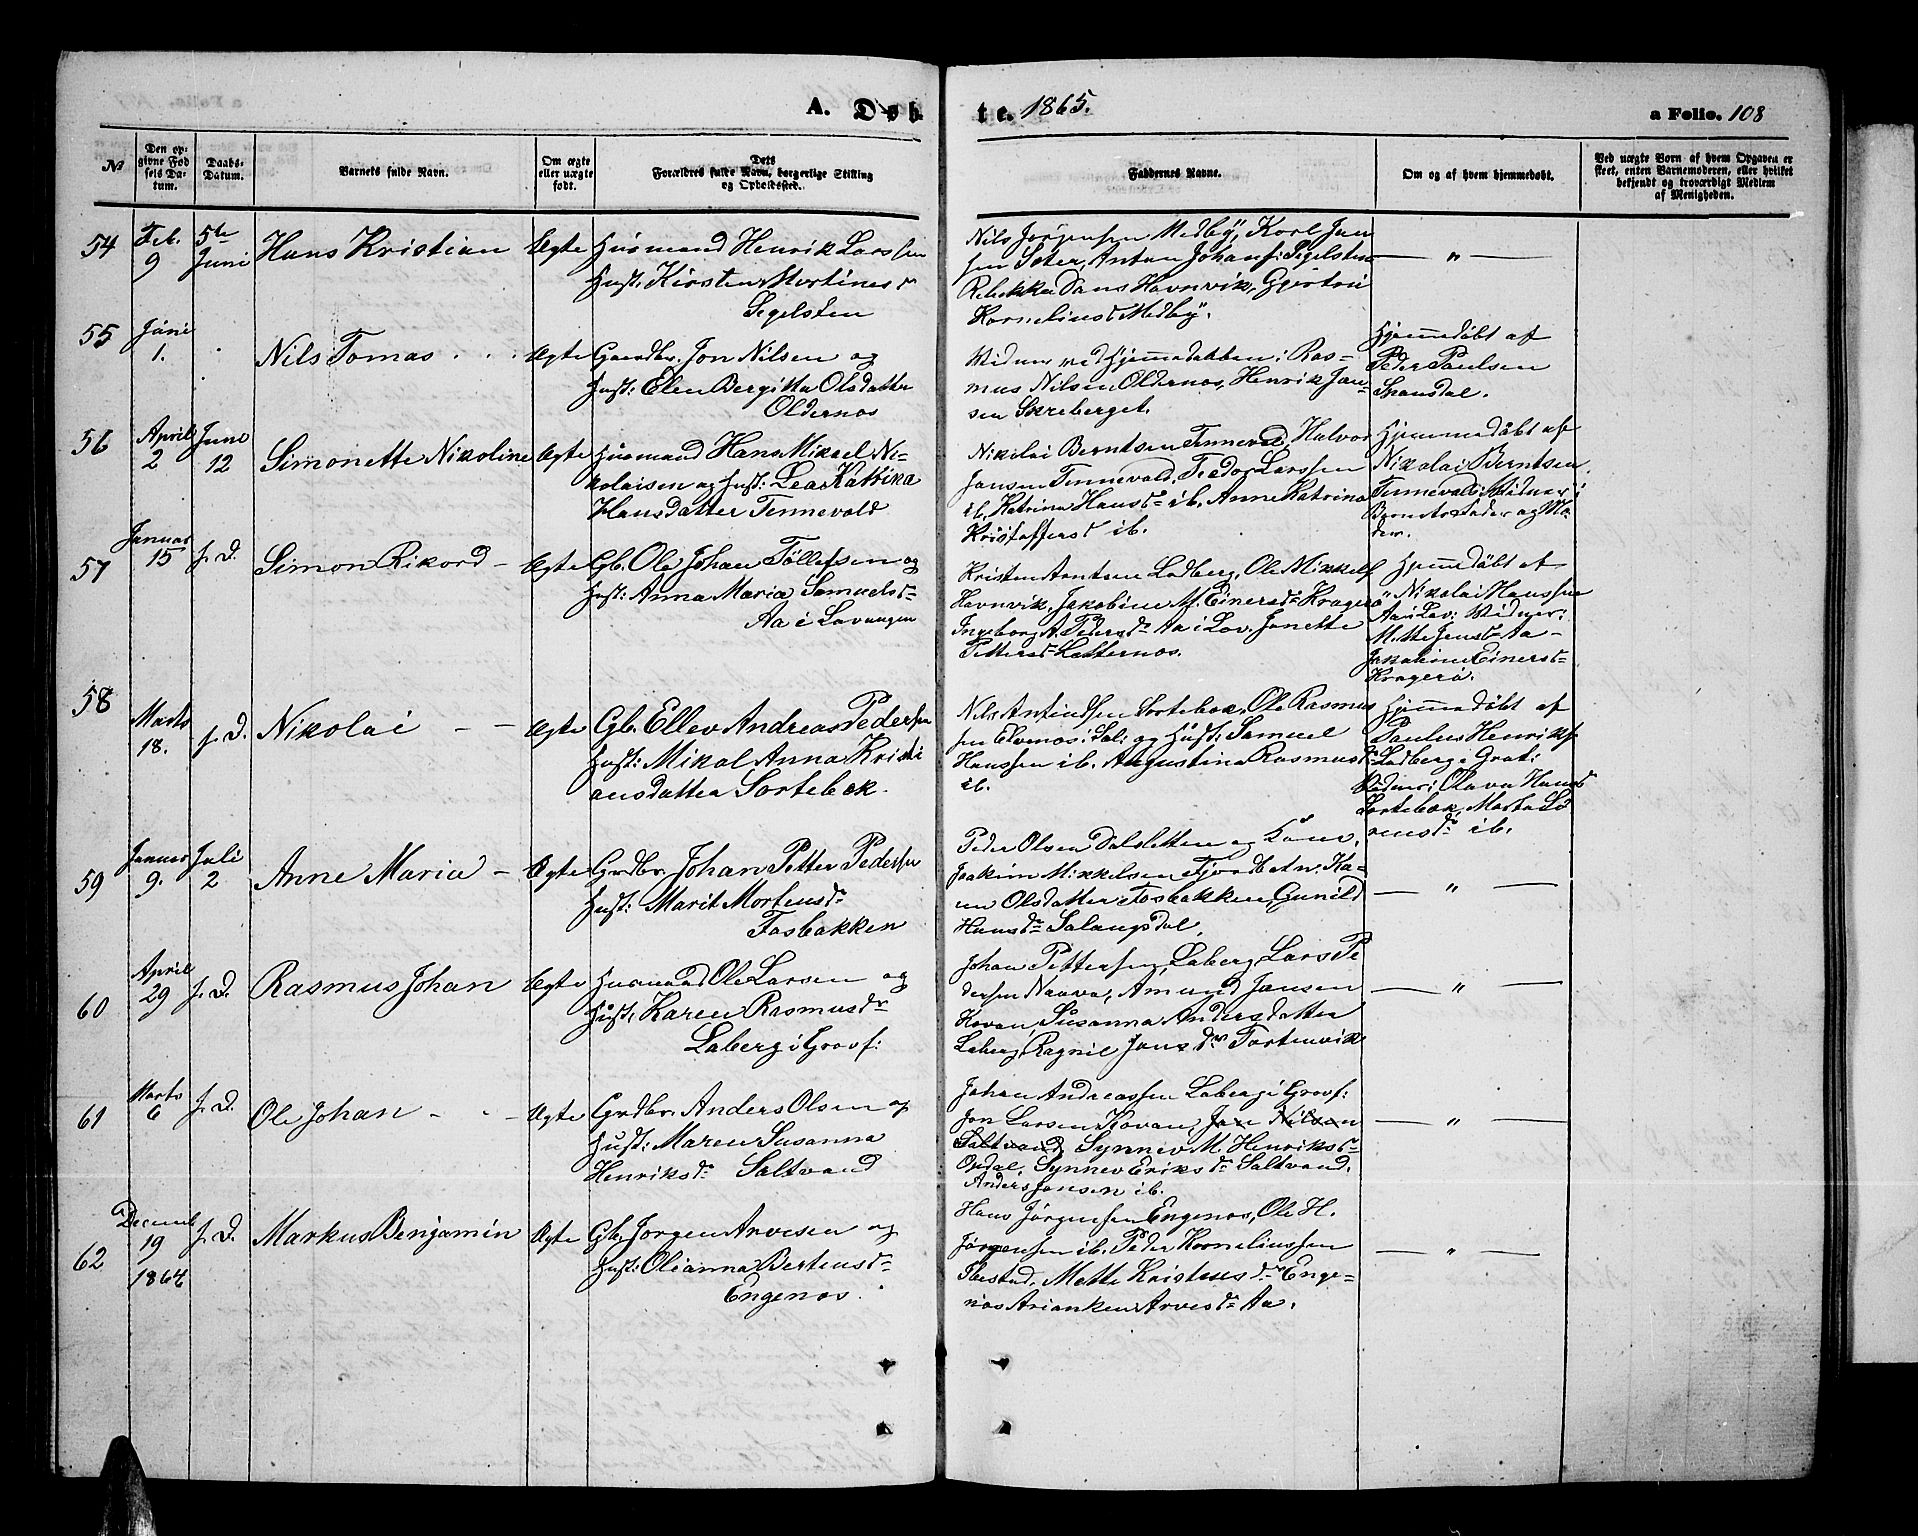 A. Døbte. 1865.
a Folio. 108
№
Den op-
givne Fød
sels Da-
tum.
Daabs-
Datum.
Barnets fulde Navn.
Om ægte
eller uægte
født.
Dets
Forældres fulde Navn, borgerlige Stilling
og Opholdssted.
Faddernes Navne.
Om og af hvem hjemmedøbt.
Ved uægte Børn af hvem Opgaven er
skeet, enten Barnemoderen, eller hvilket
bekjendt og troværdigt Medlem
af Menigheden.
54
Feb.
9
5te
Juni
Hans Kristian
Ægte
Husmand Henrik Larssen
Hust. Kirsten Mortinesd
Segelsten
Nils Jørgensen Medby, Karl Jan
sen Seter, Antun Johans: Segelsten
Rebekka Dans Havnvik, Gjertrui
Kornelius d Medby.
— " —
55
Juni
1.
Nils Tomas
Ægte
Gaardbr. Jon Nilsen og
Hust: Elen Bergitta Olsdatter
Oldernos
Vidner ved Hjemmedøbben: Ras-
mus Nilsen Oldernos, Henrik Jan-
sen Skreberget.
Hjemmedøbt af
Peder Paulsen
Spansdal.
56
April
2
Juni
12
Simonette Nikoline
Ægte
Husmand Hans Mikael Ni-
kolaisen og Hust: Lea Katrina
Hansdatter Tennevold
Nikolai Berntsen Tennevol, Halvor
Jansen Tennevald, Teodor Larssen
ib. Katrina Hansd ib. Anne Katrina
Kristoffersd ib.
Hjemmedøbt af
Nikolai Berntsen
Tennevald: Vidner:
Barnets Fader og Mo-
der.
57
Januar
15
s. D.
Simon Rikord —
Ægte
Gb. Ole Johan Tollefsen og
Hust: Anna Maria Samuelsd
Aa i Lavangen
Kristen Arntsen Lodberg, Ole Mikkels
Havnvik, Jakobine M. Einersd Kragerø
Ingeborg A. Pedersd Aa i Lav. Janette
Pettersd Løtternos.
Hjemmedøbt af
Nikolai Hanssen
Aa i Lav: Vidner:
Mette Jensd Aa -
Jakobine Einersd
Kragerø.
58
Marts
18.
s. D.
Nikolai
Ægte
Gb. Ellev Andreas Pedersen
Hust: Mikal Anna Kristi
ansdatter Sortebek.
Nils Antindsen Sortebek, Ole Rasmus
sen Elvenos i Sal: og Hust: Samuel
Hanssen ib. Augustina Rasmusd
ib.
Hjemmedøbt af
Paulus Henriks
Lodberg i Grat:
Vidner: Olava Hansd
Sortebek, Marta Lø
rensd ib.
59
Januar
9.
Juli
2
Anne Maria —
Ægte
Grdbr. Johan Petter Pedersen
Hust: Marit Mortensd
Fosbakken
Peder Olsen Dalsletten og Kone,
Joakim Mikkelsen Fjordbotn. Ka-
ren Olsdatter Fosbakken, Gunild
Hansd Salangsdal,
— " —
60
April
29
s. D.
Rasmus Johan
Ægte
Husmand Ole Larsen og
Hust. Karen Rasmusdr
Laberg i Grovf:
Johan Pettersen, Laberg, Lars Pe
dersen Naava, Amund Jansen
Hovan, Susanna Andersdatter
Laberg, Ragnil Jans dr Tortenvik
— " —
61
Marts
6
s. D.
Ole Johan
Ægte
Grdbr. Anders Olsen og
Hust: Maren Susanna
Henriksdr Saltvand
Johan Andreassen Laberg i Grovf:
Jon Larsen Hovan, Jon Nilsen
Saltvand, Synnev M. Henriksd
Opdal, Synnev Eriksd Saltvand.
Anders Jansen ib.
— " —
62
Decemb
19
1864
s. D.
Markus Benjamin
Ægte
Gb. Jorgen Arvesen og
Hust: Olianna Bertensd
Engenos.
Hans Jørgensen Engenos, Ole H.
Jørgensen ib. Peder Korneliussen
Ibestad, Mette Kristens dr Enge-
nos Arianken Arvesd Aa.
— " —